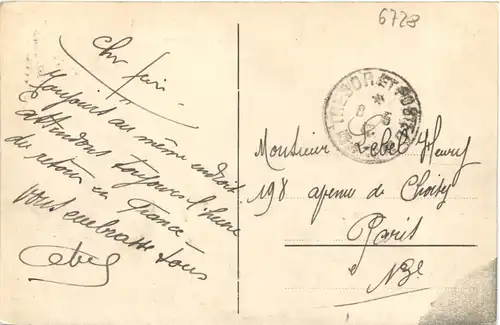 6728
Chr
Toujours au même endroit
attendons toujours l'heure
du retour en France
vous embrasse tous
Lebel
TRESOR ET POSTES
*
8 5
Monsieur Lebel Henry
198 avenue de Choisy
Paris